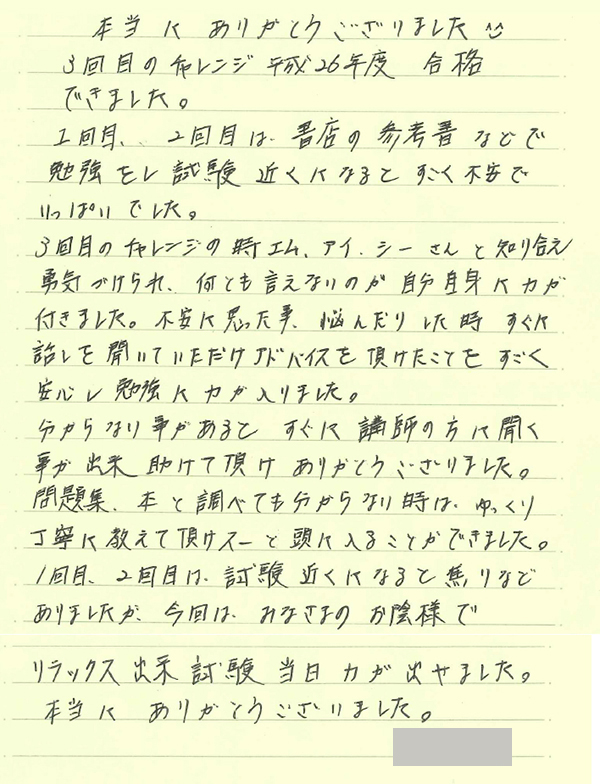 本当に ありがとうございました
3回目のチャレンジ 平成26年度 合格
できました。
1回目、2回目は、書店の 参考書 などで
勉強をし 試験 近くになると すごく不安で
いっぱい でした。
3回目のチャレンジの時 エム、アイ、シー さん と 知り合え
勇気づけられ、何とも言えないのが 自分自身に力が
付きました。不安に思った事、悩んだり した時 すぐに
話しを聞いていただけ アドバイスを 頂けたことを すごく
安心し 勉強に力が入りました。
分からない事があると すぐに 講師の方に聞く
事が出来 助けて頂け ありがとうございました。
問題集、本と調べても分からない時は、ゆっくり
丁寧に教えて頂けスーと頭に入ることができました。
1回目、2回目は、試験 近くになると 焦りなど
ありましたが、今回は、みなさまの お陰様で
リラックス 出来 試験 当日 力が 出せました。
本当に ありがとうございました。